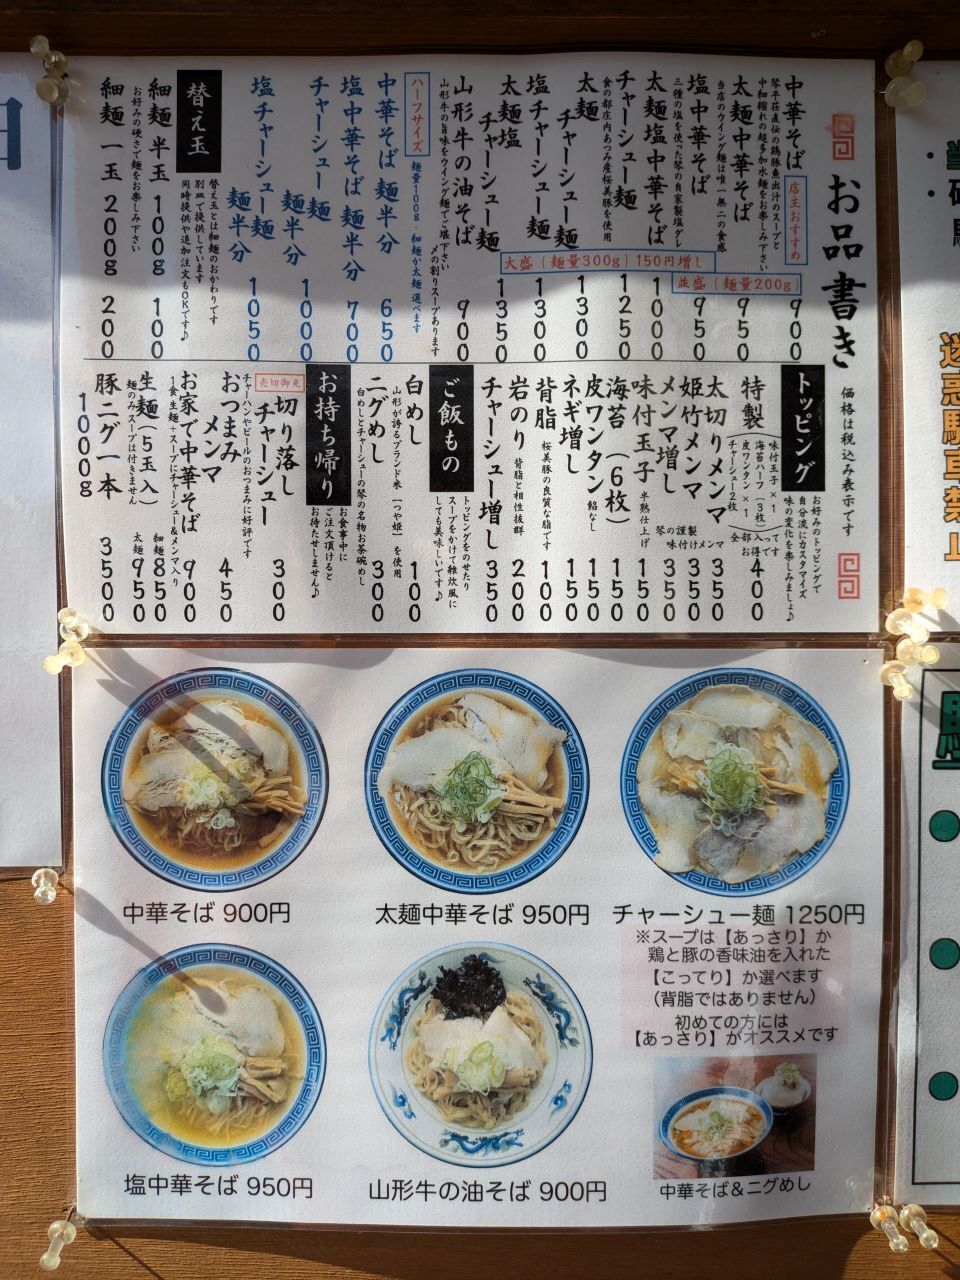 お品書き
価格は税込み表示です
中華そば
店主おすすめ
900
琴平荘直伝の鶏豚魚出汁のスープと
中細縮れの超多加水麺をお楽しみ下さい
太麺中華そば
950
当店のウイング麺は唯一無二の食感
塩中華そば
950
三種の塩を使った琴の自家製塩ダレ
太麺塩中華そば
1000
チャーシュー麺
1250
食の都庄内あつみ産桜美豚を使用
太麺チャーシュー麺
1300
塩チャーシュー麺
1300
太麺塩チャーシュー麺
1350
並盛(麺量200g)
大盛(麺量300g)150円増し
山形牛の油そば
900
山形牛の旨味をウイング麺でご堪能下さい
〆の割りスープあります
ハーフサイズ
麺量100g・細麺か太麺選べます
中華そば 麺半分 650
塩中華そば 麺半分 700
チャーシュー麺 麺半分 1000
塩チャーシュー麺 麺半分 1050
替え玉
替え玉とは細麺のおかわりです
別皿で提供しています
同時提供や追加注文もOKです♪
細麺 半玉 100g 100
お好みの硬さで麺をお楽しみ下さい
細麺 一玉 200g 200
トッピング
お好みのトッピングで
自分流にカスタマイズ
味の変化を楽しみましょ♪
特製
味付玉子×1
海苔ハーフ(3枚)
皮ワンタン×1
チャーシュー2枚
全部入って
お得です
400
太切りメンマ 350
姫竹メンマ 350
琴の謹製
味付けメンマ
メンマ増し 350
味付玉子 半熟仕上げ 150
海苔(6枚) 150
皮ワンタン 餡なし 150
ネギ増し 150
背脂 桜美豚の良質な脂です 100
岩のり 背脂と相性抜群 200
チャーシュー増し 350
ご飯もの
トッピングをのせたり
スープをかけて雑炊風に
しても美味しいです♪
白めし 100
山形が誇るブランド米「つや姫」を使用
ニグめし 300
白めしとチャーシューの琴の名物お茶碗めし
お持ち帰り
お食事中に
ご注文頂けると
お待たせしません♪
売切御免
切り落しチャーシュー 300
チャーハンやビールのおつまみに好評です
おつまみメンマ 450
お家で中華そば 900
1食生麺+スープにチャーシュー&メンマ入り
生麺(5玉入) 細麺850
太麺950
麺のみスープは付きません
豚ニグ一本 1000g 3500
中華そば 900円
太麺中華そば 950円
チャーシュー麺 1250円
※スープは【あっさり】か
鶏と豚の香味油を入れた
【こってり】か選べます
(背脂ではありません)
初めての方には
【あっさり】がオススメです
塩中華そば 950円
山形牛の油そば 900円
中華そば&ニグめし
迷惑駐車禁止